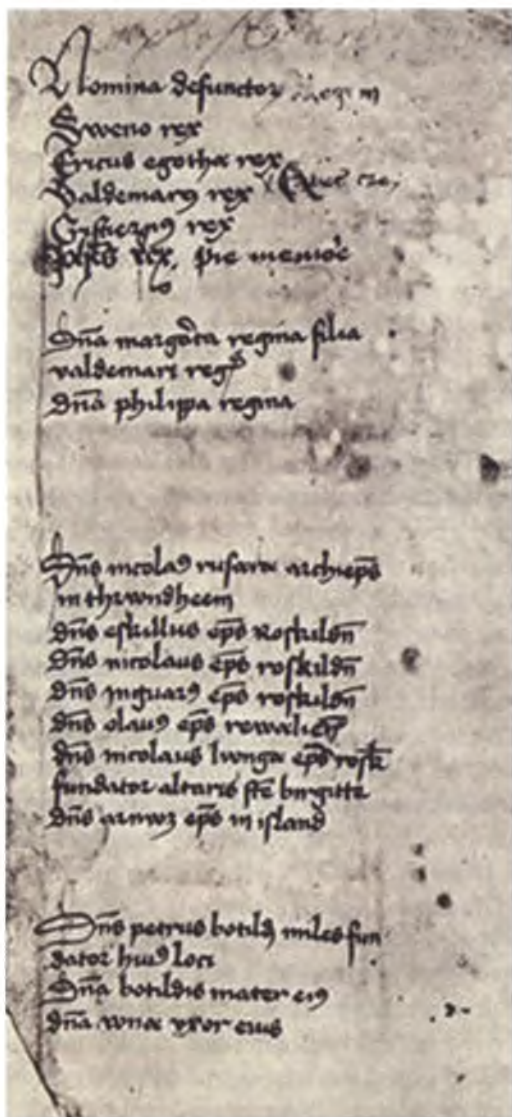 Nomina defunctor
Sweno rex
Ericus egothæ rex
Valdemarꝰ rex
rex
Joh̄es rex, pie memoͬie
Dn̄a margͬeta regina filia
valdemari regꝭ
dn̄a philippa regina
Dn̄s nicolaꝰ rusaræ archiep̄s
in thrwndheem
dn̄s eskillus ep̄s Roskildn̄
dn̄s nicolaus ep̄s roskildn̄
dn̄s inguarꝰ ep̄s roskildn̄
dn̄s olauꝰ ep̄s rewalien̄
dn̄s nicolaus lunga ep̄s rosk
fundator altaris sc̄e birgitte
dn̄s arnoꝝ ep̄s in island
Dn̄s petrus botildꝭ miles fun
dator huiꝰ loci
Dn̄a botildis mater eiꝰ
dn̄a vxor eius